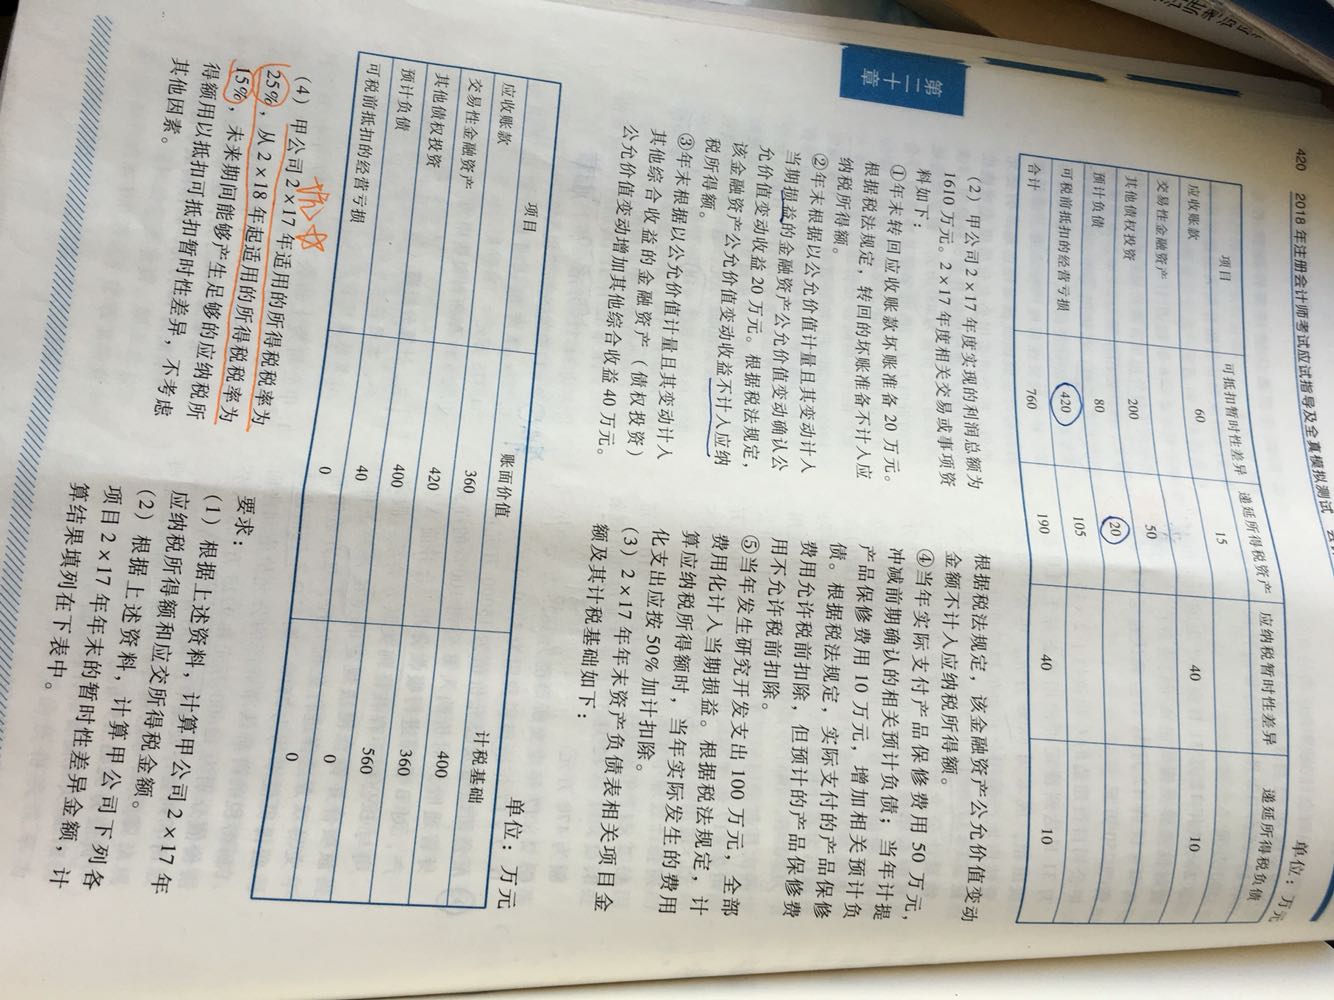 420 2018年注册会计师考试应试指导及全真模拟测试
单位：万元
项目 可抵扣暂时性差异 递延所得税资产 应纳税暂时性差异 递延所得税负债
应收账款 60 15
交易性金融资产 40 10
其他债权投资 200 50
预计负债 80 20
可税前抵扣的经营亏损 420 105
合计 760 190 40 10
第二十章
（2）甲公司2×17年度实现的利润总额为
1610万元。2×17年度相关交易或事项资
料如下：
①年末转回应收账款坏账准备20万元。
根据税法规定，转回的坏账准备不计入应
纳税所得额。
②年末根据以公允价值计量且其变动计入
当期损益的金融资产公允价值变动确认公
允价值变动收益20万元。根据税法规定，
该金融资产公允价值变动收益不计入应纳
税所得额。
③年末根据以公允价值计量且其变动计入
其他综合收益的金融资产（债权投资）
公允价值变动增加其他综合收益40万元。
根据税法规定，该金融资产公允价值变动
金额不计入应纳税所得额。
④当年实际支付产品保修费用50万元，
冲减前期确认的相关预计负债；当年计提
产品保修费用10万元，增加相关预计负
债。根据税法规定，实际支付的产品保修
费用允许税前扣除，但预计的产品保修费
用不允许税前扣除。
⑤当年发生研究开发支出100万元，全部
费用化计入当期损益。根据税法规定，计
算应纳税所得额时，当年实际发生的费用
化支出应按50%加计扣除。
（3）2×17年年末资产负债表相关项目金
额及其计税基础如下：
单位：万元
项目 账面价值 计税基础
应收账款 360 400
交易性金融资产 420 360
其他债权投资 400 560
预计负债 40 0
可税前抵扣的经营亏损 0 0
（4）甲公司2×17年适用的所得税税率为
25%，从2×18年起适用的所得税税率为
15%，未来期间能够产生足够的应纳税所
得额用以抵扣可抵扣暂时性差异，不考虑
其他因素。
要求：
（1）根据上述资料，计算甲公司2×17年
应纳税所得额和应交所得税金额。
（2）根据上述资料，计算甲公司下列各
项目2×17年年末的暂时性差异金额，计
算结果填列在下表中。